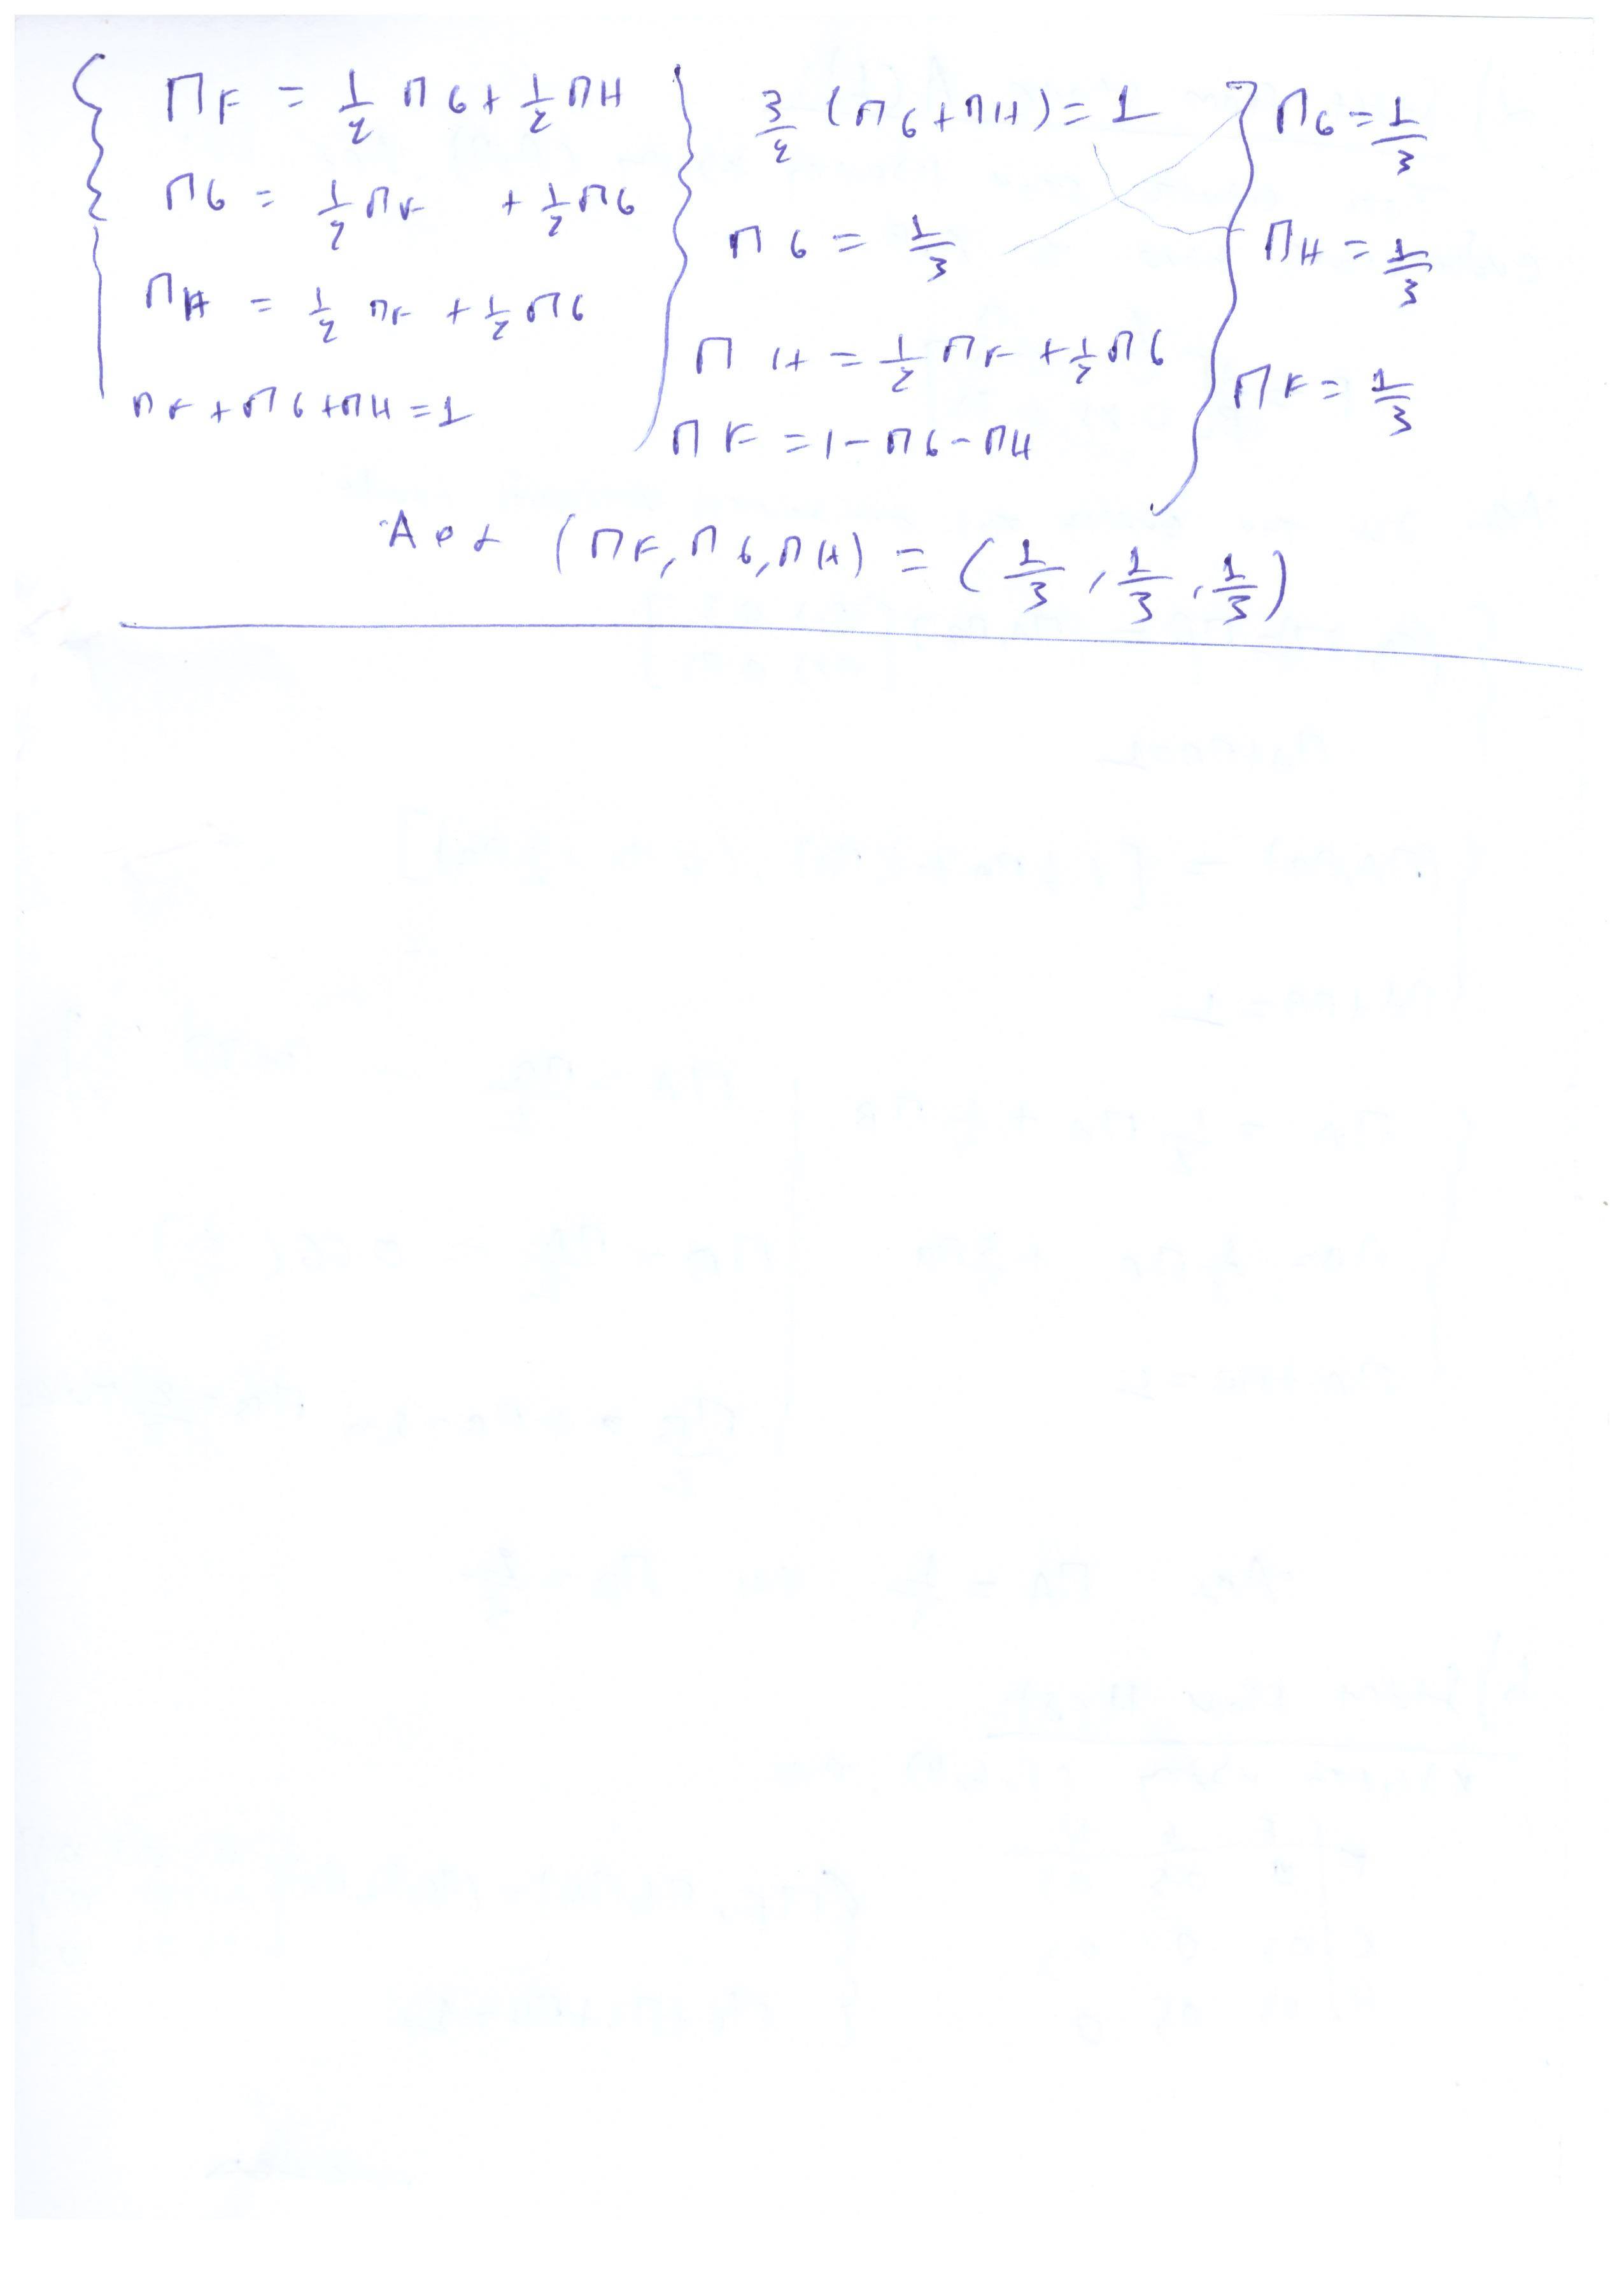 ΠF = 1/2 ΠG + 1/2 ΠH
ΠG = 1/2 ΠF + 1/2 ΠG
ΠH = 1/2 ΠF + 1/2 ΠG
ΠF + ΠG + ΠH = 1
3/2 (ΠG + ΠH) = 1
ΠG = 1/3
ΠH = 1/2 ΠF + 1/2 ΠG
ΠF = 1 - ΠG - ΠH
ΠG = 1/3
ΠH = 1/3
ΠF = 1/3
Αρα (ΠF, ΠG, ΠH) = (1/3, 1/3, 1/3)